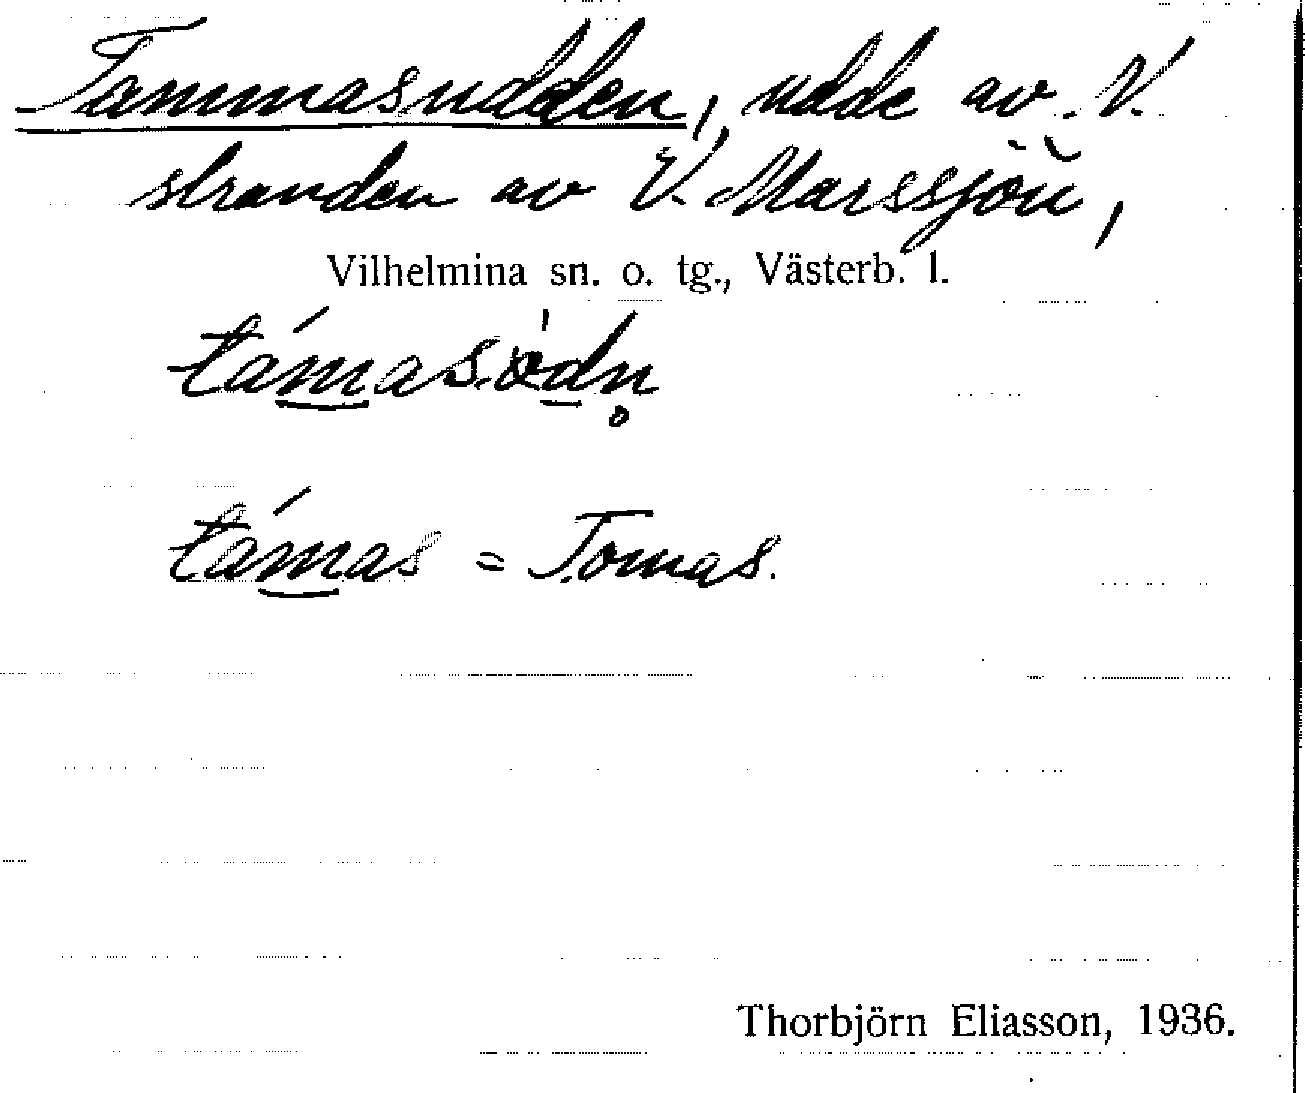 Tammasudden, udde av N.
stranden av V. Marssjön,
Vilhelmina sn. o. tg., Västerb. l.
támas
támas = Tomas.
Thorbjörn Eliasson, 1936.